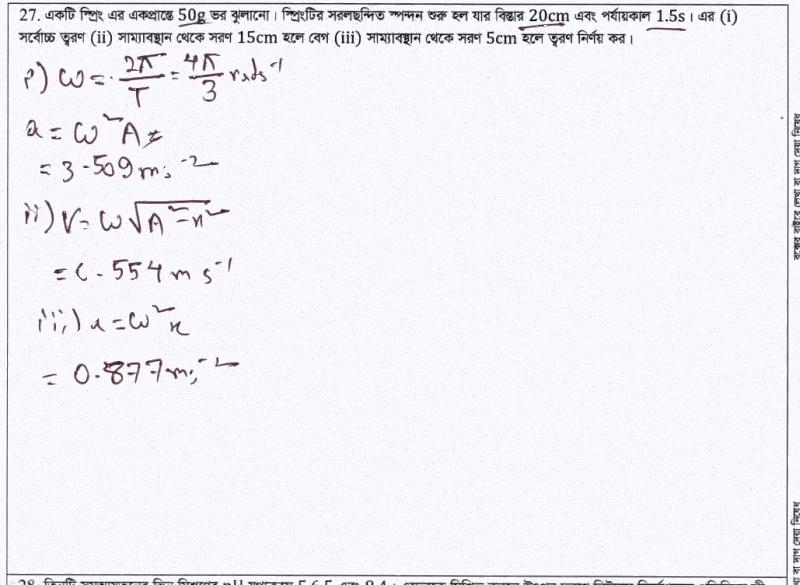 27. একটি স্প্রিং এর একপ্রান্তে 50g ভর ঝুলানো। স্প্রিংটির সরলছন্দিত স্পন্দন শুরু হল যার বিস্তার 20cm এবং পর্যায়কাল 1.5s। এর (i)
সর্বোচ্চ ত্বরণ (ii) সাম্যাবস্থান থেকে সরণ 15cm হলে বেগ (iii) সাম্যাবস্থান থেকে সরণ 5cm হলে ত্বরণ নির্ণয় কর।
i) ω = 2π/T = 4π/3 rads⁻¹
a = ω²A
= 3.509 ms⁻²
ii) V = ω√A²-x²
= 0.554 m s⁻¹
iii) a = ω²x
= 0.877 ms⁻²